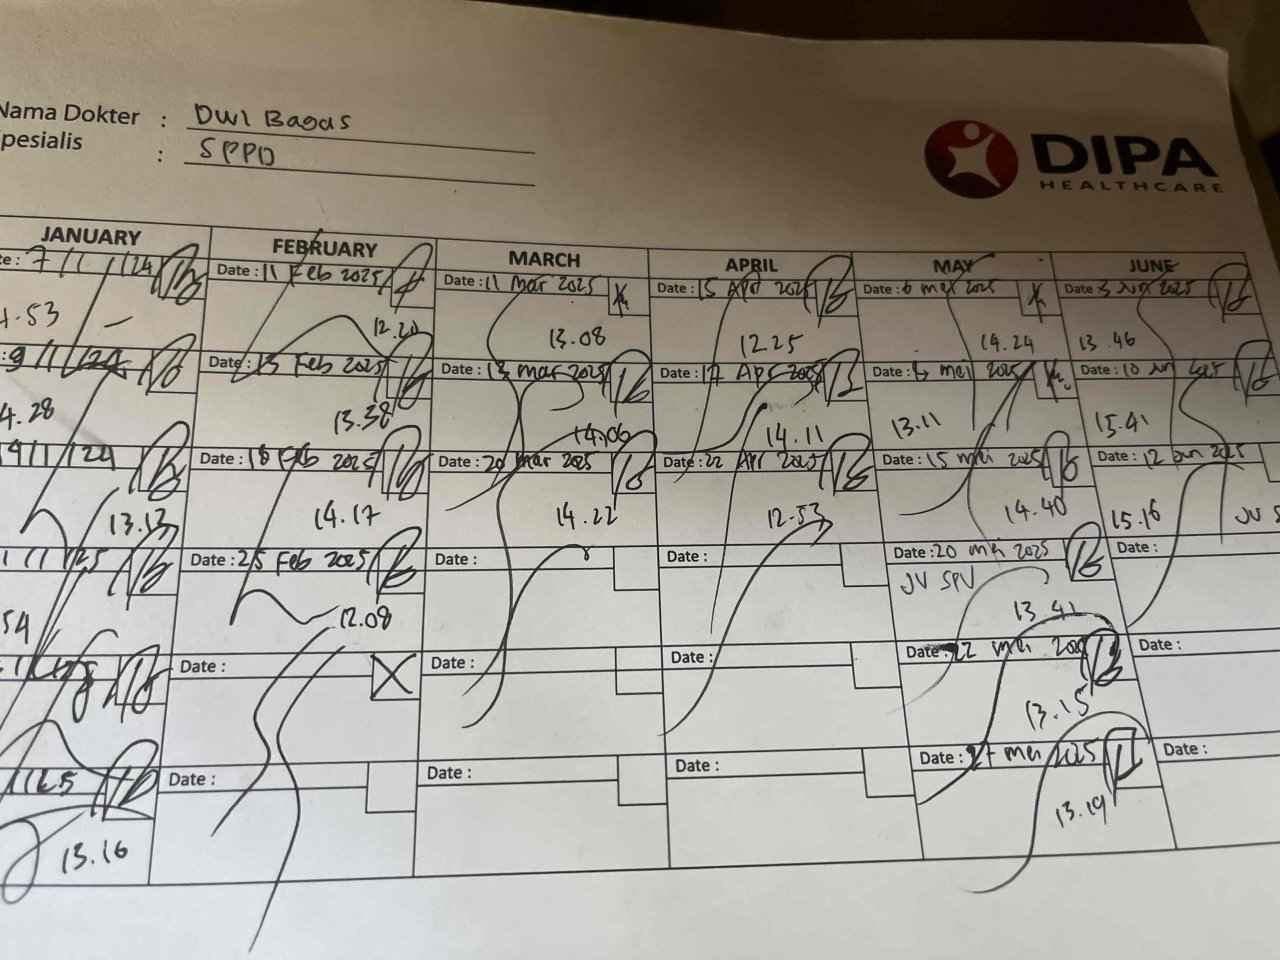 Nama Dokter : Dwi Bagas
Spesialis : SPPD
DIPA
HEALTHCARE
JANUARY FEBRUARY MARCH APRIL MAY JUNE
7/1/24 Date : 11 Feb 2025 Date : 11 Mar 2025 Date : 15 Apr 2025 Date : 6 mei 2025 Date : 3 Jun 2025
4.53 12.20 13.08 12.25 14.24 13.46
9/1/24 Date : 13 Feb 2025 Date : 13 mar 2025 Date : 17 Apr 2025 Date : mei 2025 Date : 10 Jun 2025
4.28 13.38 14.06 14.11 13.11 15.41
/1/24 Date : 18 Feb 2025 Date : 20 mar 2025 Date : 22 Apr 2025 Date : 15 mei 2025 Date : 12 Jun 2025
13.13 14.17 14.22 12.53 14.40 15.16 JV
/1/25 Date : 25 Feb 2025 Date : Date : Date : 20 mei 2025 Date :
54 12.08 JV SPV 13.41
Date : Date : Date : Date : 22 mei 2025 Date :
13.15
Date : Date : Date : Date : 27 mei 2025 Date :
13.16 13.19